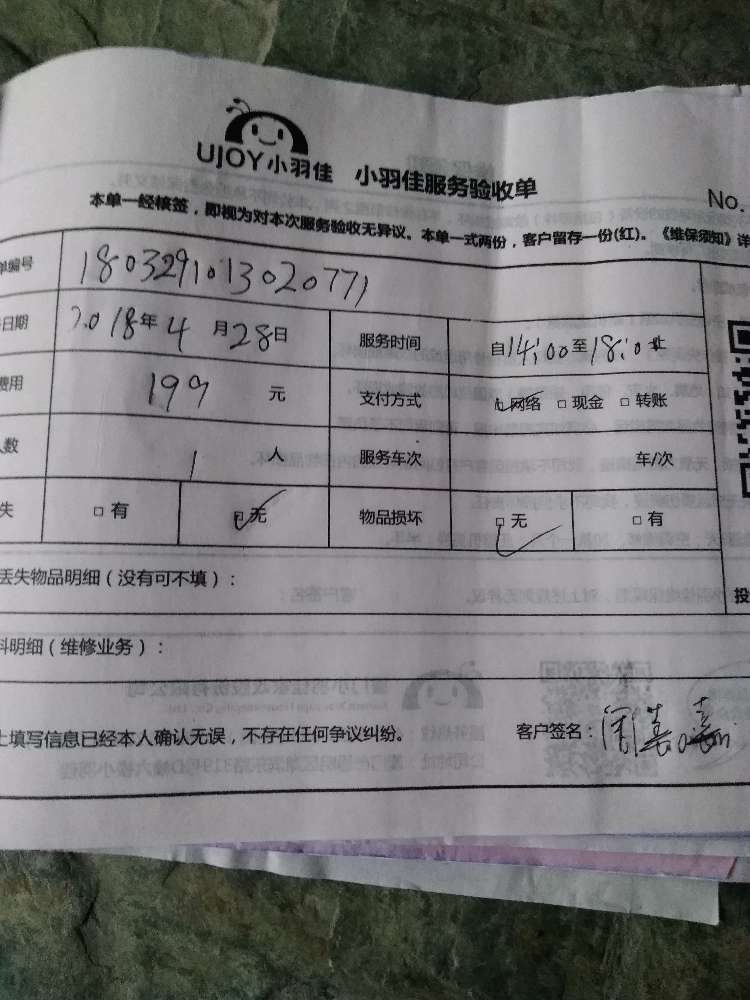 UJOY小羽佳 小羽佳服务验收单
No.
本单一经核签，即视为对本次服务验收无异议。本单一式两份，客户留存一份(红)。《维保须知》详
单编号 180329101302077)
日期 2018年4月28日 服务时间 自14:00至18:0止
费用 199 元 支付方式 □网络 □现金 □转账
人数 1 人 服务车次 车/次
失 □有 □无 物品损坏 □无 □有
丢失物品明细（没有可不填）：
投
料明细（维修业务）：
上填写信息已经本人确认无误，不存在任何争议纠纷。 客户签名：